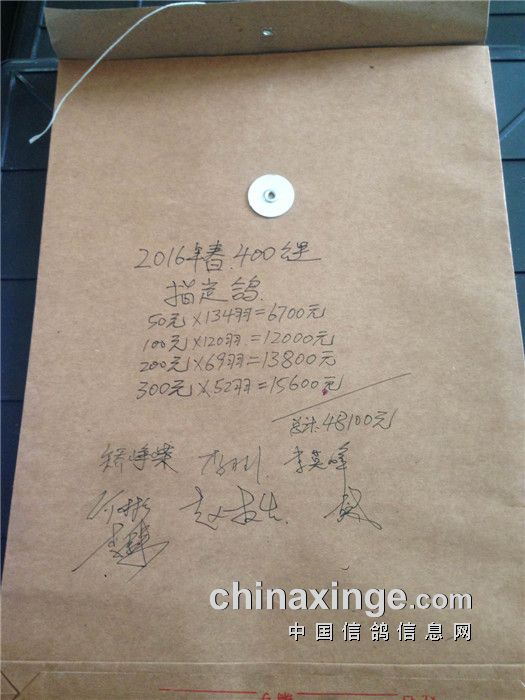 2016年春.400公里
指定鸽.
50元×134羽=6700元
100元×120羽=12000元
200元×69羽=13800元
300元×52羽=15600元
总计:48100元
李英峰
chinaxinge.com
中国信鸽信息网